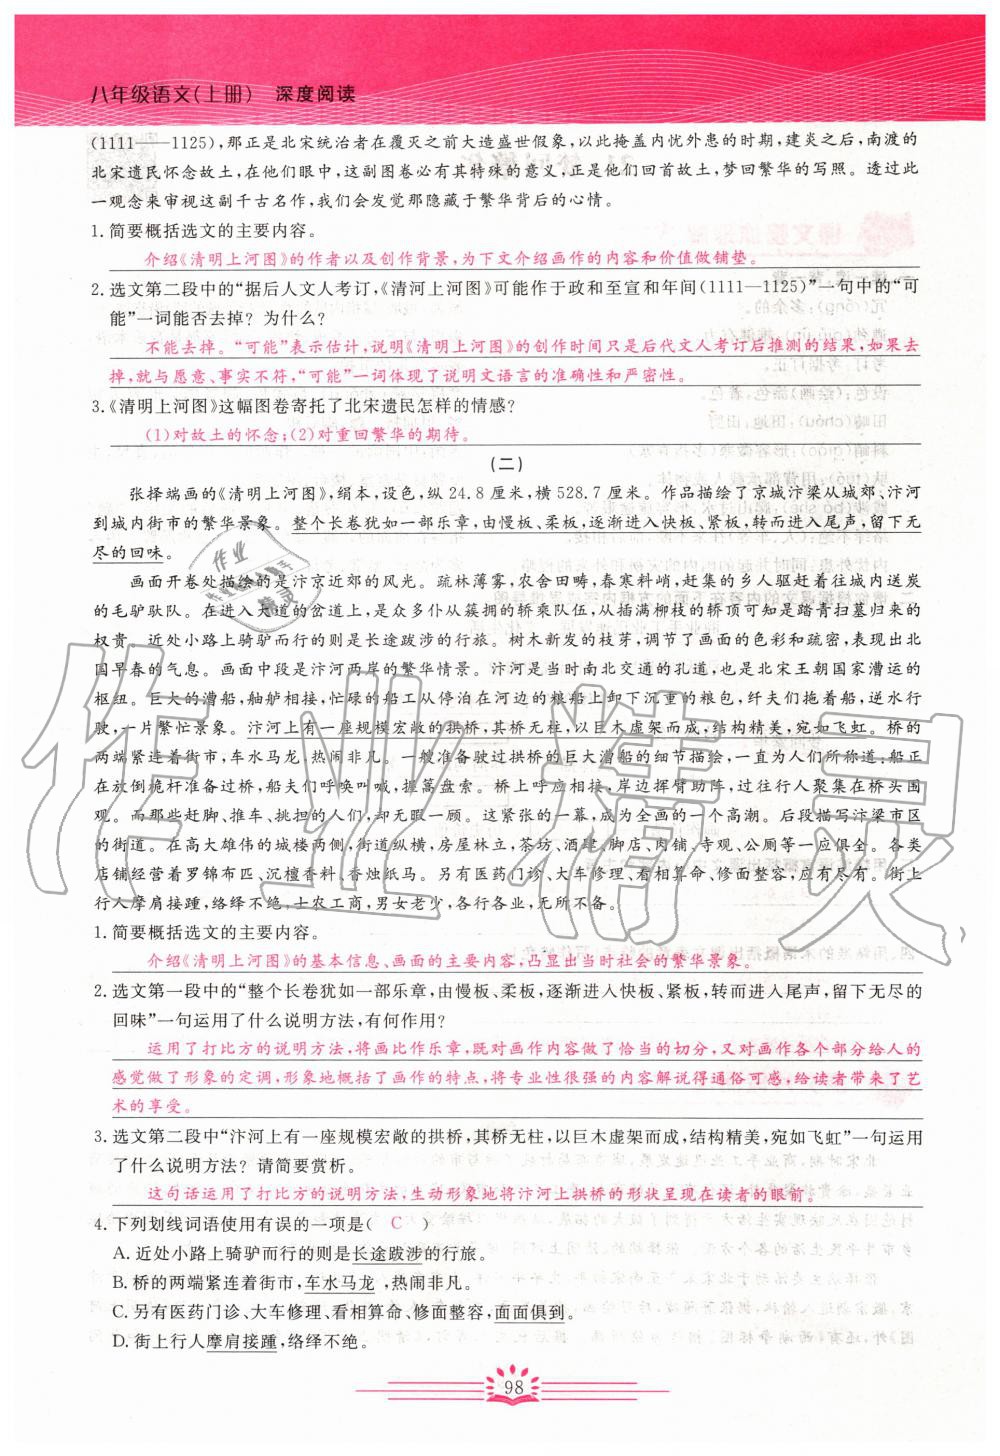 八年级语文(上册) 深度阅读
(1111——1125),那正是北宋统治者在覆灭之前大造盛世假象,以此掩盖内忧外患的时期,建炎之后,南渡的
北宋遗民怀念故土,在他们眼中,这副图卷必有其特殊的意义,正是他们回首故土,梦回繁华的写照。透过此
一观念来审视这副千古名作,我们会发觉那隐藏于繁华背后的心情。
1.简要概括选文的主要内容。
介绍《清明上河图》的作者以及创作背景,为下文介绍画作的内容和价值做铺垫。
2.选文第二段中的“据后人文人考订,《清河上河图》可能作于政和至宣和年间(1111—1125)”一句中的“可
能”一词能否去掉?为什么?
不能去掉。“可能”表示估计,说明《清明上河图》的创作时间只是后代文人考订后推测的结果,如果去
掉,就与愿意、事实不符,“可能”一词体现了说明文语言的准确性和严密性。
3.《清明上河图》这幅图卷寄托了北宋遗民怎样的情感?
(1)对故土的怀念;(2)对重回繁华的期待。
(二)
张择端画的《清明上河图》,绢本,设色,纵24.8厘米,横528.7厘米。作品描绘了京城汴梁从城郊、汴河
到城内街市的繁华景象。整个长卷犹如一部乐章,由慢板、柔板,逐渐进入快板、紧板,转而进入尾声,留下无
尽的回味。
画面开卷处描绘的是汴京近郊的风光。疏林薄雾,农舍田畴,春寒料峭,赶集的乡人驱赶着往城内送炭
的毛驴驮队。在进入大道的岔道上,是众多仆从簇拥的轿乘队伍,从插满柳枝的轿顶可知是踏青扫墓归来的
权贵。近处小路上骑驴而行的则是长途跋涉的行旅。树木新发的枝芽,调节了画面的色彩和疏密,表现出北
国早春的气息。画面中段是汴河两岸的繁华情景。汴河是当时南北交通的孔道,也是北宋王朝国家漕运的
枢纽。巨大的漕船,舳舻相接,忙碌的船工从停泊在河边的粮船上卸下沉重的粮包,纤夫们拖着船,逆水行
驶,一片繁忙景象。汴河上有一座规模宏敞的拱桥,其桥无柱,以巨木虚架而成,结构精美,宛如飞虹。桥的
两端紧连着街市,车水马龙,热闹非凡。一艘准备驶过拱桥的巨大漕船的细节描绘,一直为人们所称道:船正
在放倒桅杆准备过桥,船夫们呼唤叫喊,握篙盘索。桥上呼应相接,岸边挥臂助阵,过往行人聚集在桥头围
观。而那些赶脚、推车、挑担的人们,却无暇一顾。这紧张的一幕,成为全画的一个高潮。后段描写汴梁市区
的街道。在高大雄伟的城楼两侧,街道纵横,房屋林立,茶坊、酒肆、脚店、肉铺、寺观、公廨等一应俱全。各类
店铺经营着罗锦布匹、沉檀香料、香烛纸马。另有医药门诊、大车修理、看相算命、修面整容,应有尽有。街上
行人摩肩接踵,络绎不绝,士农工商,男女老少,各行各业,无所不备。
1.简要概括选文的主要内容。
介绍《清明上河图》的基本信息、画面的主要内容,凸显出当时社会的繁华景象。
2.选文第一段中的“整个长卷犹如一部乐章,由慢板、柔板,逐渐进入快板、紧板,转而进入尾声,留下无尽的
回味”一句运用了什么说明方法,有何作用?
运用了打比方的说明方法,将画比作乐章,既对画作内容做了恰当的切分,又对画作各个部分给人的
感觉做了形象的定调,形象地概括了画作的特点,将专业性很强的内容解说得通俗可感,给读者带来了艺
术的享受。
3.选文第二段中“汴河上有一座规模宏敞的拱桥,其桥无柱,以巨木虚架而成,结构精美,宛如飞虹”一句运用
了什么说明方法?请简要赏析。
这句话运用了打比方的说明方法,生动形象地将汴河上拱桥的形状呈现在读者的眼前。
4.下列划线词语使用有误的一项是( C )
A.近处小路上骑驴而行的则是长途跋涉的行旅。
B.桥的两端紧连着街市,车水马龙,热闹非凡。
C.另有医药门诊、大车修理、看相算命、修面整容,面面俱到。
D.街上行人摩肩接踵,络绎不绝。
98
作业精灵